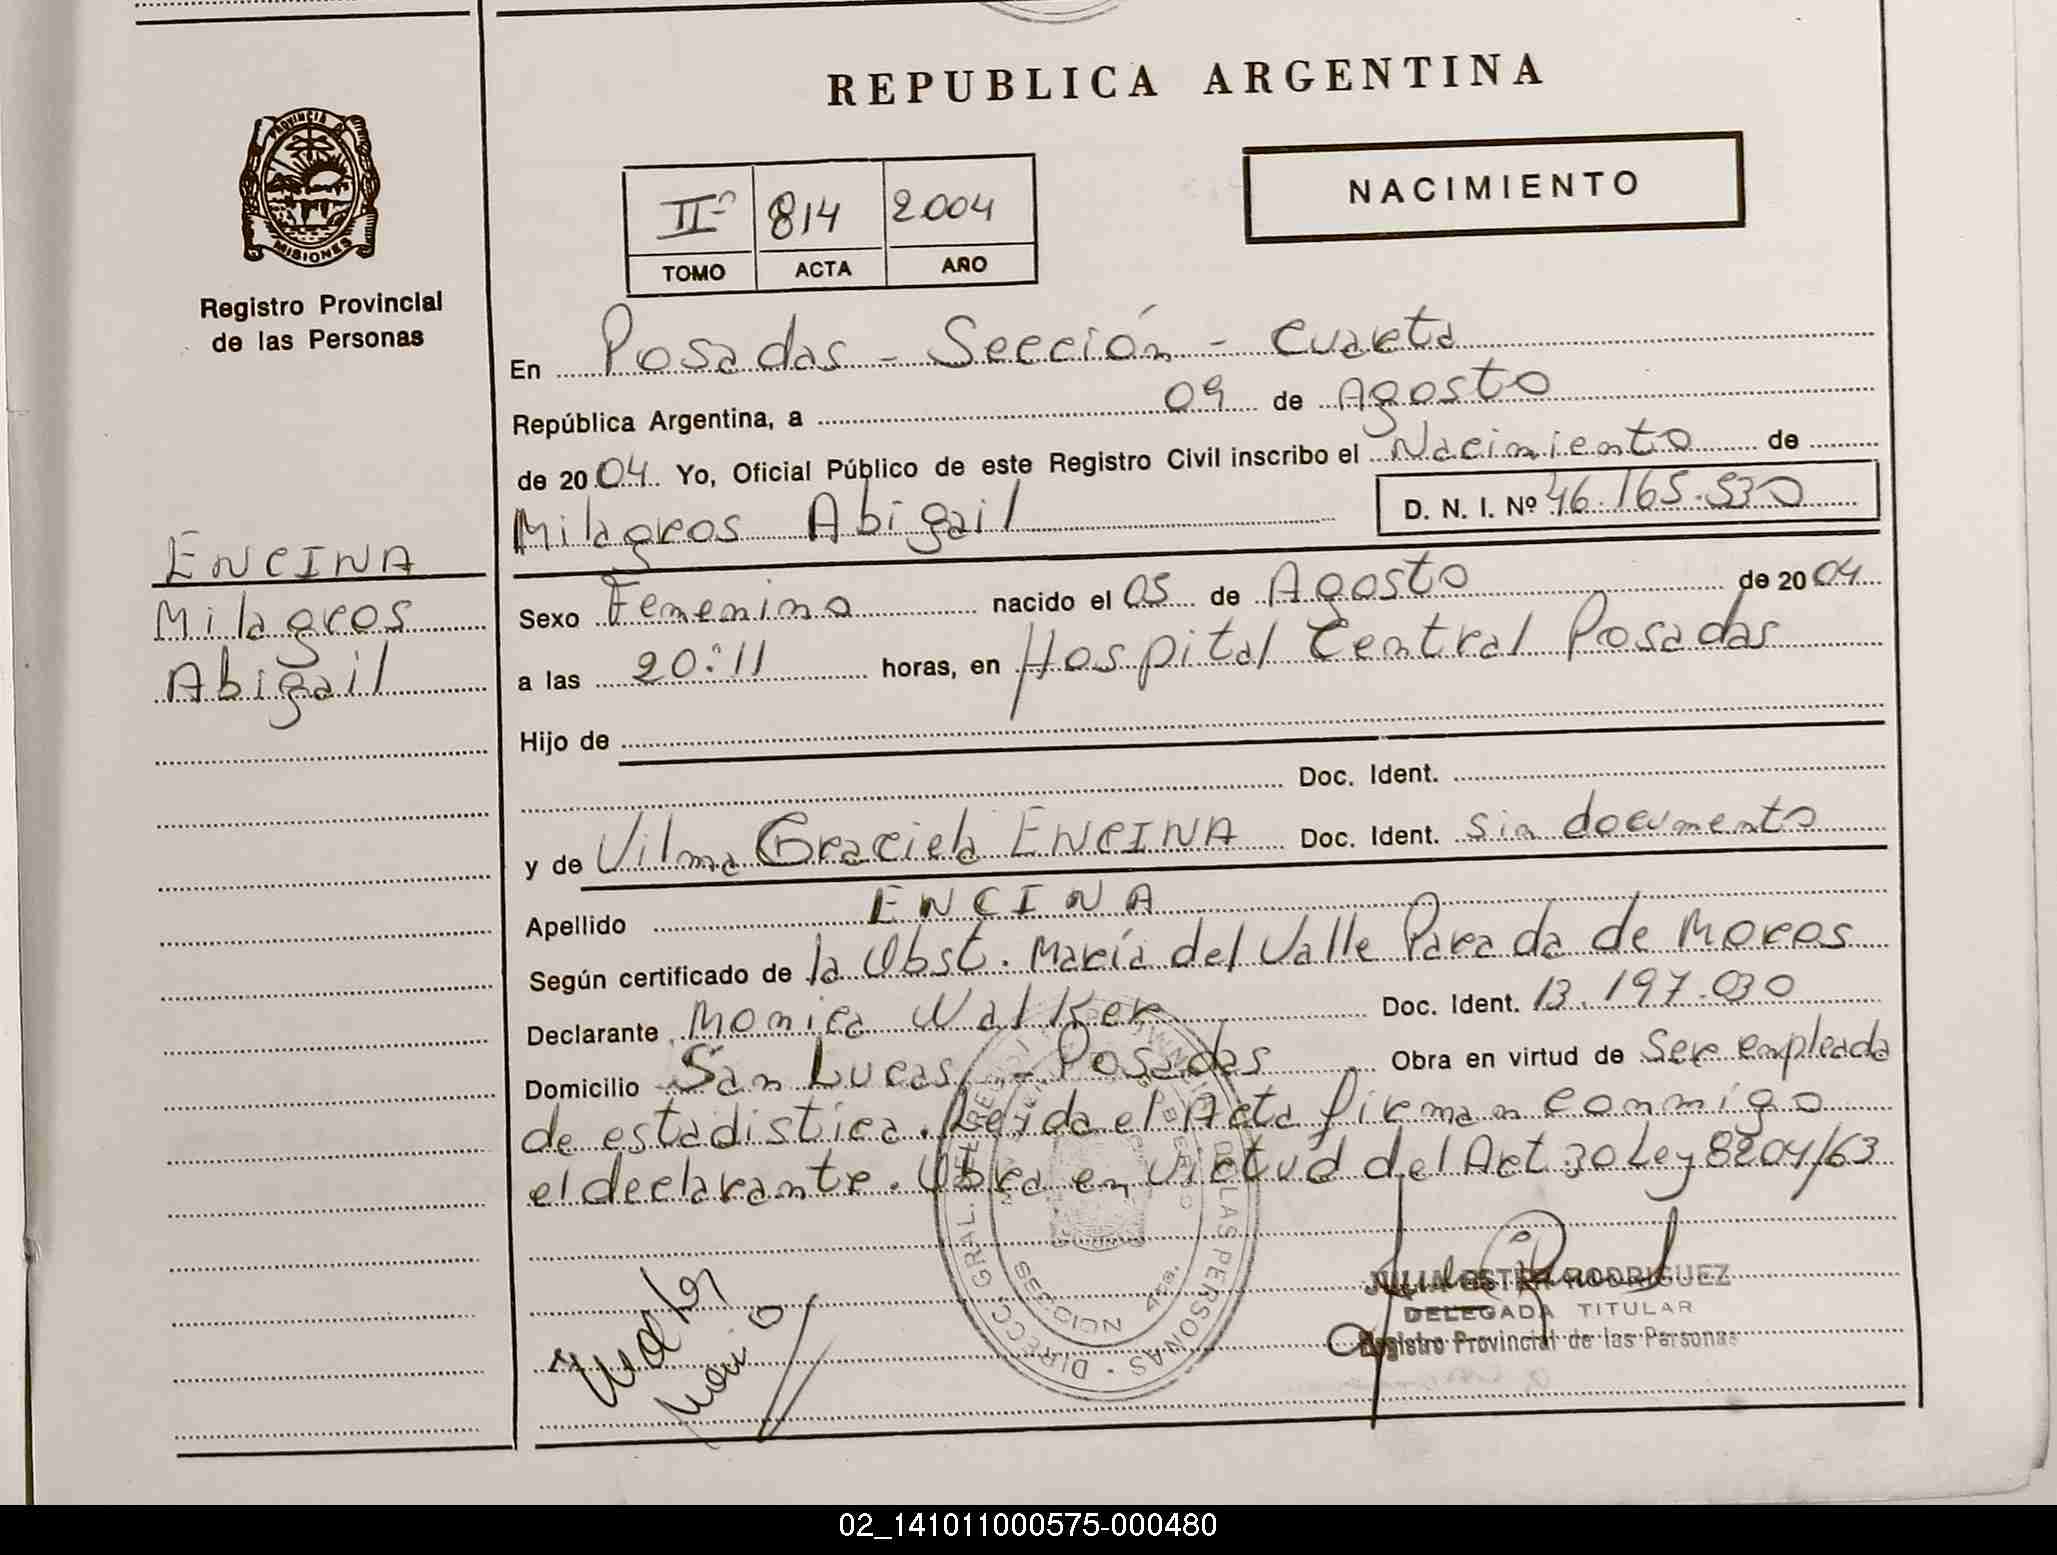 REPUBLICA ARGENTINA
PROVINCIA DE
MISIONES
Registro Provincial
de las Personas
NACIMIENTO
IIº 814 2004
TOMO ACTA AÑO
En Posadas - Sección - Cuarta
República Argentina, a 09 de Agosto
de 2004 Yo, Oficial Público de este Registro Civil inscribo el Nacimiento de
Milagros Abigail D. N. I. Nº 46.165.530
ENCINA
Milagros
Abigail
Sexo Femenino nacido el 05 de Agosto de 2004
a las 20:11 horas, en Hospital Central Posadas
Hijo de
Doc. Ident.
y de Vilma Graciela ENCINA Doc. Ident. sin documento
Apellido ENCINA
Según certificado de la Obst. María del Valle Parada de Moros
Declarante Monica Walker Doc. Ident. 13.197.030
Domicilio San Lucas - Posadas Obra en virtud de Ser empleada
de estadistica. Leida el Acta firman conmigo
el declarante. Obra en virtud del Art 30 Ley 8204/63
JULIA ESTER RODRIGUEZ
DELEGADA TITULAR
Registro Provincial de las Personas
DIRECC. GRAL. DE LAS PERSONAS
02_141011000575-000480